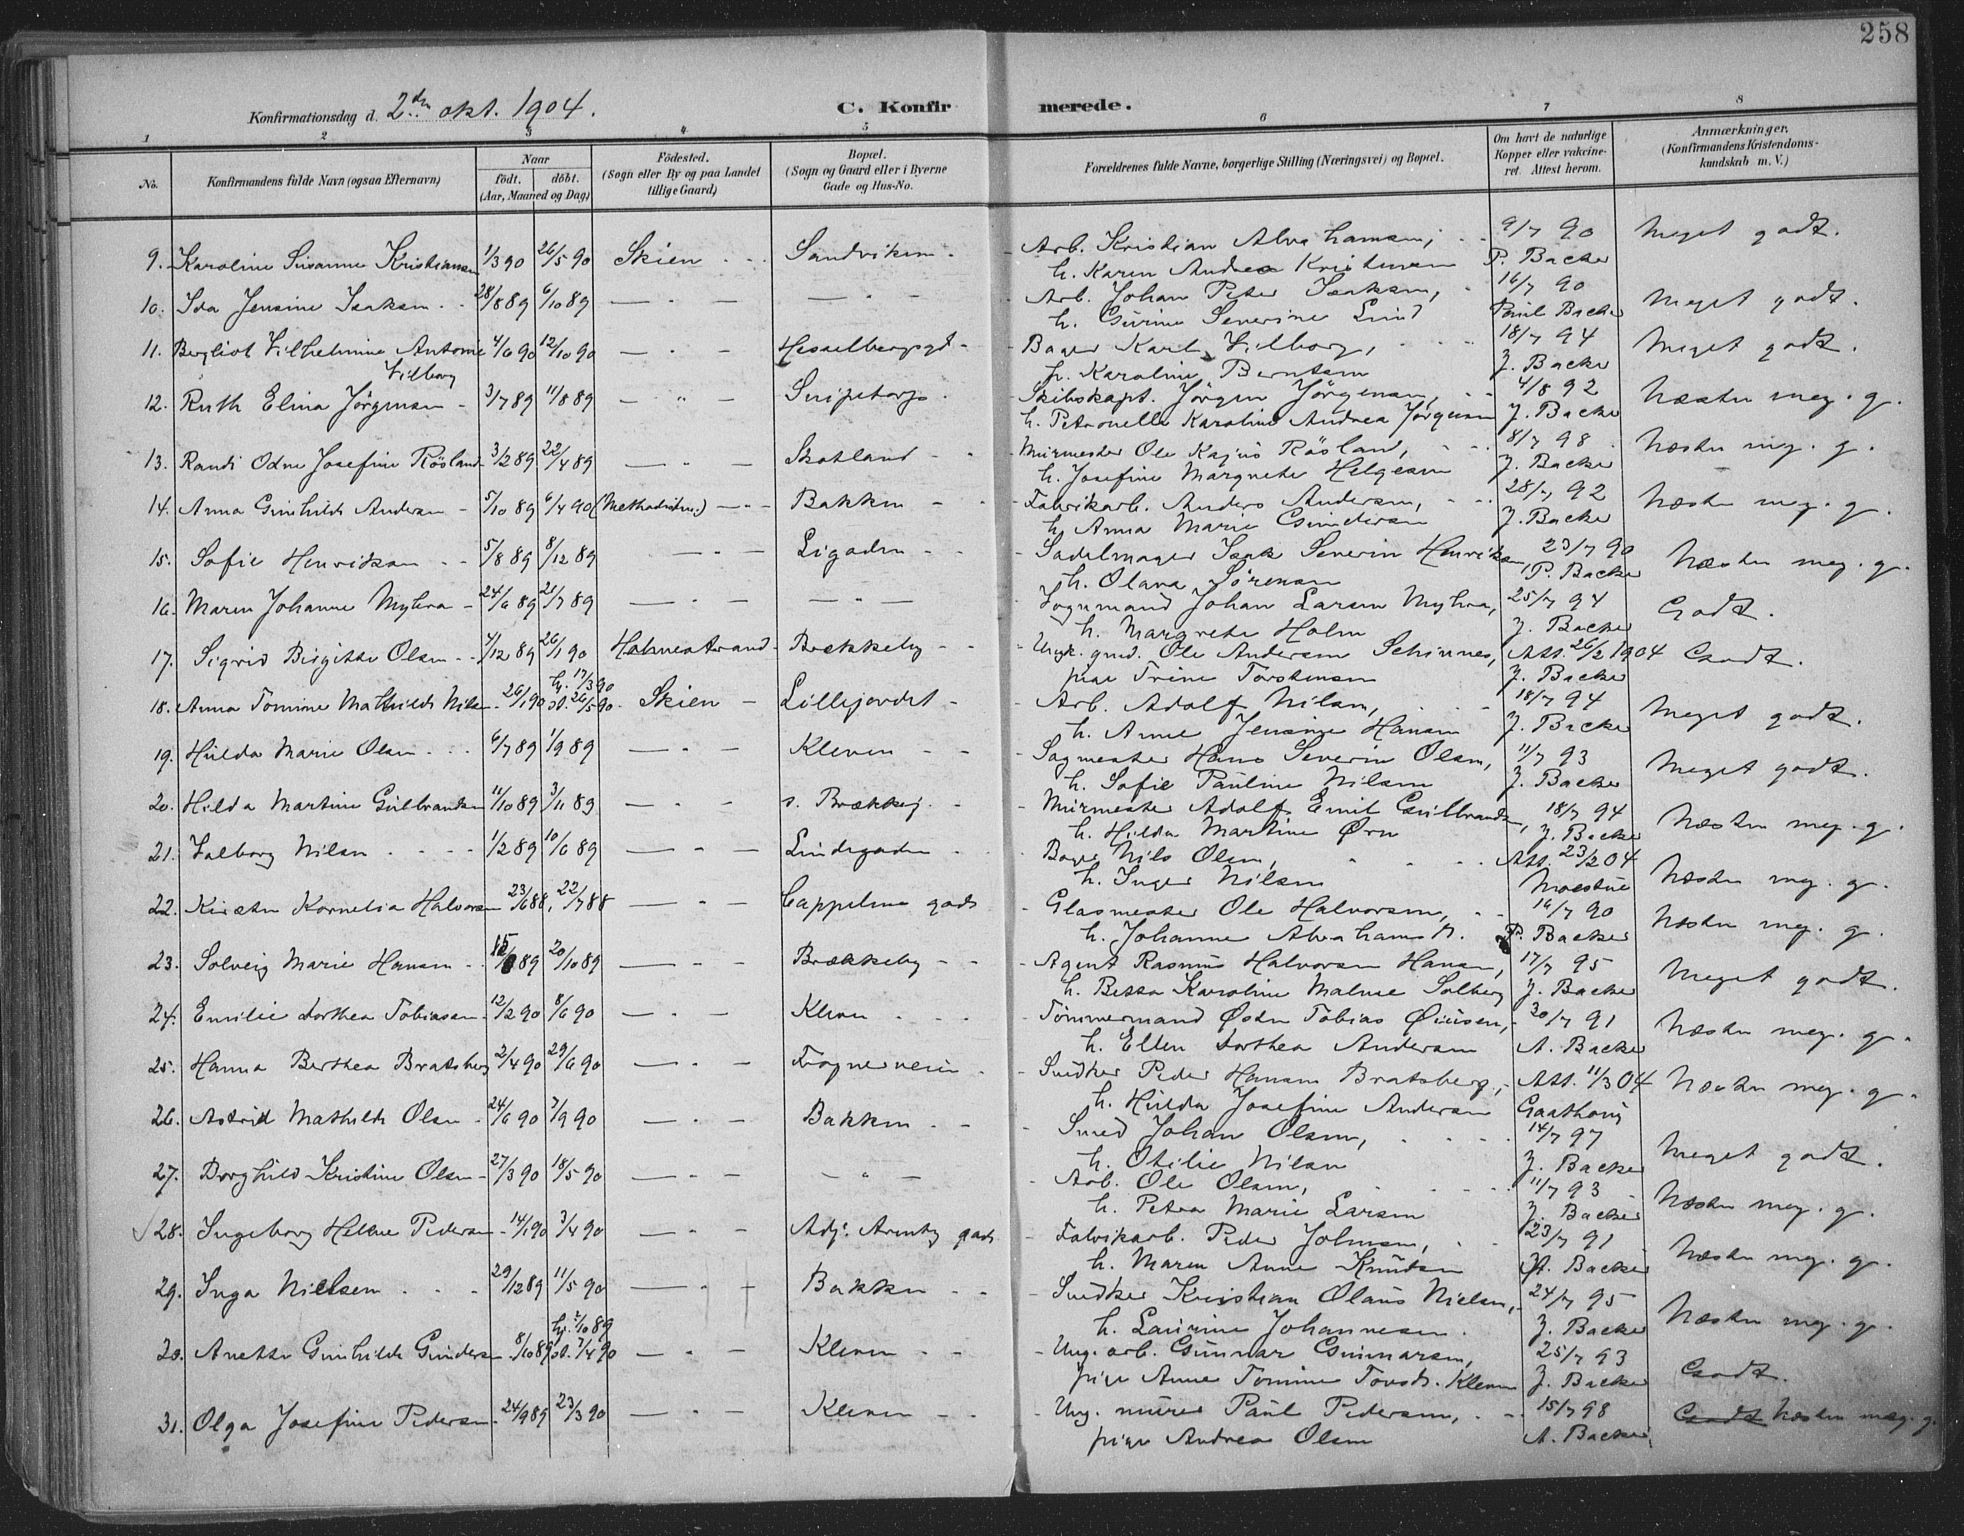 258
Konfirmationsdag d. 2den okt. 1904. C. Konfirmerede.
1 2 3 4 5 6 7 8
No. Konfirmandens fulde Navn (ogsaa Efternavn) Naar födt. döbt. (Aar, Maaned og Dag) Födested. (Sogn eller By og paa Landet tillige Gaard) Bopæl. (Sogn og Gaard eller i Byerne Gade og Hus-No. Forældrenes fulde Navne, borgerlige Stilling (Næringsvei) og Bopæl. Om havt de naturlige Kopper eller vakcineret. Attest herom. Anmærkninger. (Konfirmandens Kristendomskundskab m. V.)
9. Karoline Susanne Kristiansen 1/3 90 26/5 90 Skien Sandviken Arb. Kristian Abrahamsen, 9/7 90 Meget godt.
h. Karen Andrea Kristensen P. Backer
10. Ida Jensine Isaksen 28/8 89 6/10 89 — " — — " — Arb. Johan Peter Isaksen, 16/7 90 Meget godt.
h. Gurine Severine Lund Paul Backer
11. Bergliot Vilhelmine Antonie 4/6 90 12/10 90 — " — Hesselbergsgd. Bager Karl Vilborg, 18/7 94 Meget godt.
Vilborg h. Karoline Berntsen J. Backer
12. Ruth Elina Jörgensen 3/7 89 11/8 89 — " — Snipetorp. Skibskapt. Jörgen Jörgensen, 4/8 92 Næsten meg. g.
h. Petronelle Karoline Andrea Jörgensen J. Backer
13. Randi Odne Josefine Rösland 3/2 89 22/4 89 — " — Skotland Murmester Ole Kajus Rösland, 8/7 98 Næsten meg. g.
h. Josefine Margrete Helgesen J. Backer
14. Anna Gunhilde Andersen 5/10 89 6/4 90 (Methodistm.) — " — Bakken Fabrikarb. Anders Andersen, 28/7 92 Næsten meg. g.
h. Anna Marie Gundersen J. Backer
15. Sofie Henriksen 5/8 89 8/12 89 — " — Ligaden Sadelmager Isak Severin Henriksen 23/7 90 Næsten meg. g.
h. Olava Sörensen P. Backer
16. Maren Johanne Myhra 24/6 89 21/7 89 — " — — " — Vognmand Johan Larsen Myhra, 25/7 94 Godt.
h. Margrete Holm J. Backer
17. Sigrid Birgitte Olsen 4/12 89 26/1 90 Holmestrand Brækkeby Ungk. gmd. Ole Andersen Schinnes, Att. 26/2 1904 Godt.
pige Trine Torstensen J. Backer
18. Anna Tomine Mathilde Nilsen 26/1 90 hj. 17/3 90 d. 26/5 90 Skien Lillejordet Arb. Adolf Nilsen, 18/7 94 Meget godt.
h. Anne Jensine Hansen J. Backer
19. Hulda Marie Olsen 6/7 89 1/9 89 — " — Kleven Sagmester Hans Severin Olsen, 11/7 93 Meget godt.
h. Sofie Pauline Nilsen J. Backer
20. Hilda Martine Gulbrandsen 11/10 89 3/11 89 — " — v. Brækkej. Murmester Adolf Emil Gulbrandsen, 18/7 94 Næsten meg. g.
h. Hilda Martine Örn J. Backer
21. Valborg Nilsen 1/2 89 10/6 89 — " — Lindegaden Bager Nils Olsen, Att. 23/2 04 Næsten meg. g.
h. Inger Nilsen Moestue
22. Kirsten Kornelia Halvorsen 23/6 88, 22/7 88 — " — Cappelens gade Glasmester Ole Halvorsen, 16/7 90 Næsten meg. g.
h. Johanne Abrahamsd. P. Backer
23. Solveig Marie Hansen 15/8 89 20/10 89 — " — Brækkeby Agent Rasmus Halvorsen Hansen, 17/7 95 Meget godt.
h. Betsa Karoline Malene Solberg J. Backer
24. Emilie Dorthea Tobiasen 12/2 90 8/6 90 — " — Kleven Tömmermand Östen Tobias Öiusen, 30/7 91 Næsten meg. g.
h. Ellen Dorthea Andersen A. Backer
25. Hanna Berthea Bratsberg 2/4 90 29/6 90 — " — Fognerveien Snedker Peder Hansen Bratsberg, Att. 11/3 04 Næsten meg. g.
h. Hulda Josefine Andersen Gaathoug
26. Astrid Mathilde Olsen 24/6 90 3/9 90 — " — Bakken Smed Johan Olsen, 14/7 97 Meget godt.
h. Otilie Nilsen J. Backer
27. Borghild Kristine Olsen 27/3 90 18/5 90 — " — — " — Arb. Ole Olsen, 11/7 93 Næsten meg. g.
h. Petra Marie Larsen J. Backer
28. Ingeborg Helene Pedersen 14/1 90 3/4 90 — " — Adj. Arentz gade Fabrikarb. Peder Johnsen, 23/7 91 Næsten meg. g.
h. Maren Anne Knudsen A. Backer
29. Inga Nielsen 29/12 89 11/5 90 — " — Bakken Snedker Kristian Olaus Nielsen, 24/7 95 Næsten meg. g.
h. Laurine Johannesen J. Backer
30. Anette Gunhilde Gundersen 8/10 89 hj. 2/10 89 d. 7/4 90 — " — Kleven Ung. arb. Gunnar Gunnarsen, 25/7 93 Godt.
pige Anne Tomine Tovsdr. Kleven J. Backer
31. Olga Josefine Pedersen 24/9 89 23/3 90 — " — Kleven Ung. murer Paul Pedersen, 15/7 98 Godt Næsten meg. g.
pige Andrea Olsen A. Backer